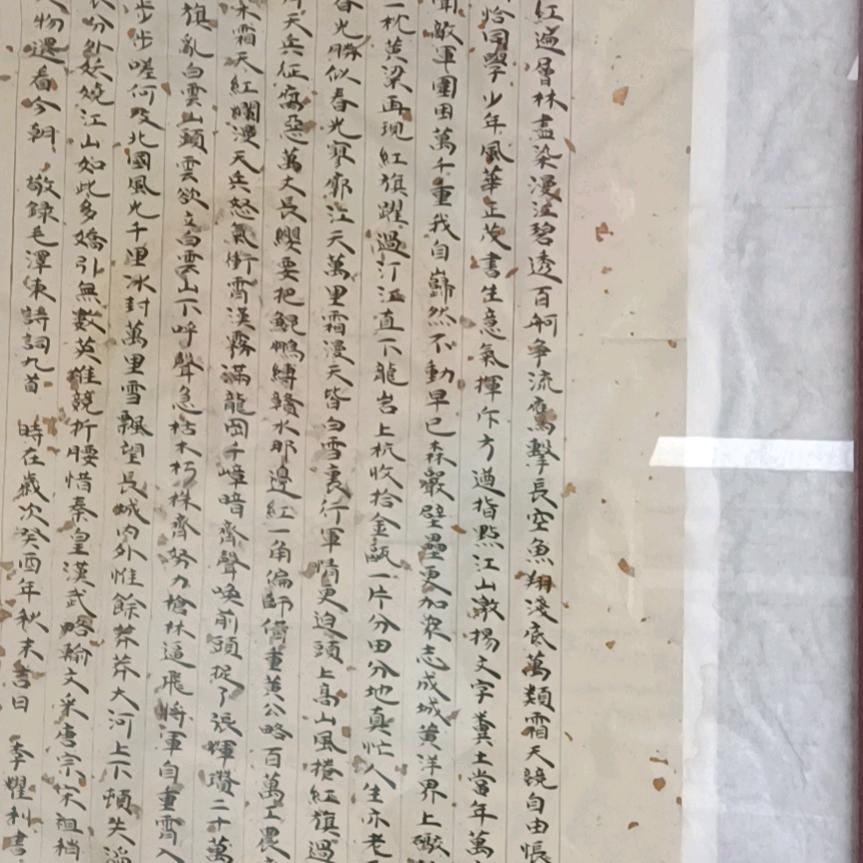 紅遍層林盡染漫江碧透百舸爭流鷹擊長空魚翔淺底萬類霜天競自由悵
恰同學少年風華正茂書生意氣揮斥方遒指點江山激揚文字糞土當年萬
敵軍圍困萬千重我自巋然不動早已森嚴壁壘更加眾志成城黃洋界上礮
一枕黃梁再現紅旗躍過汀江直下龍岩上杭收拾金甌一片分田分地真忙人生亦老
春光勝似春光寥廓江天萬里霜漫天皆白雪裏行軍情更迫頭上高山風捲紅旗過
天兵征腐惡萬丈長纓要把鯤鵬縛贛水那邊紅一角偏師借重黃公略百萬工農
木霜天紅爛漫天兵怒氣衝霄漢霧滿龍岡千嶂暗齊聲喚前頭捉了張輝瓚二十萬
旗亂白雲山頭雲欲立白雲山下呼聲急枯木朽株齊努力槍林逼飛將軍自重霄入
步步嗟何及北國風光千里冰封萬里雪飄望長城內外惟餘莽莽大河上下頓失滔
分外妖嬈江山如此多嬌引無數英雄競折腰惜秦皇漢武略輸文采唐宗宋祖稍
人物還看今朝 敬録毛澤東詩詞九首 時在歲次癸酉年秋末書日 李耀利書